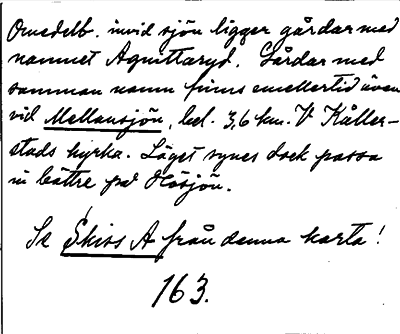 Omedelb. invid sjön ligger gårdar med
namnet Agnittaryd. Gårdar med
samman namn finns emellertid även
vid Mellansjön, bel. 3,6 km. V Kåller-
stads kyrka. Läget synes dock passa
in bättre på Hösjön.
Se Skiss A från denna karta!
163.